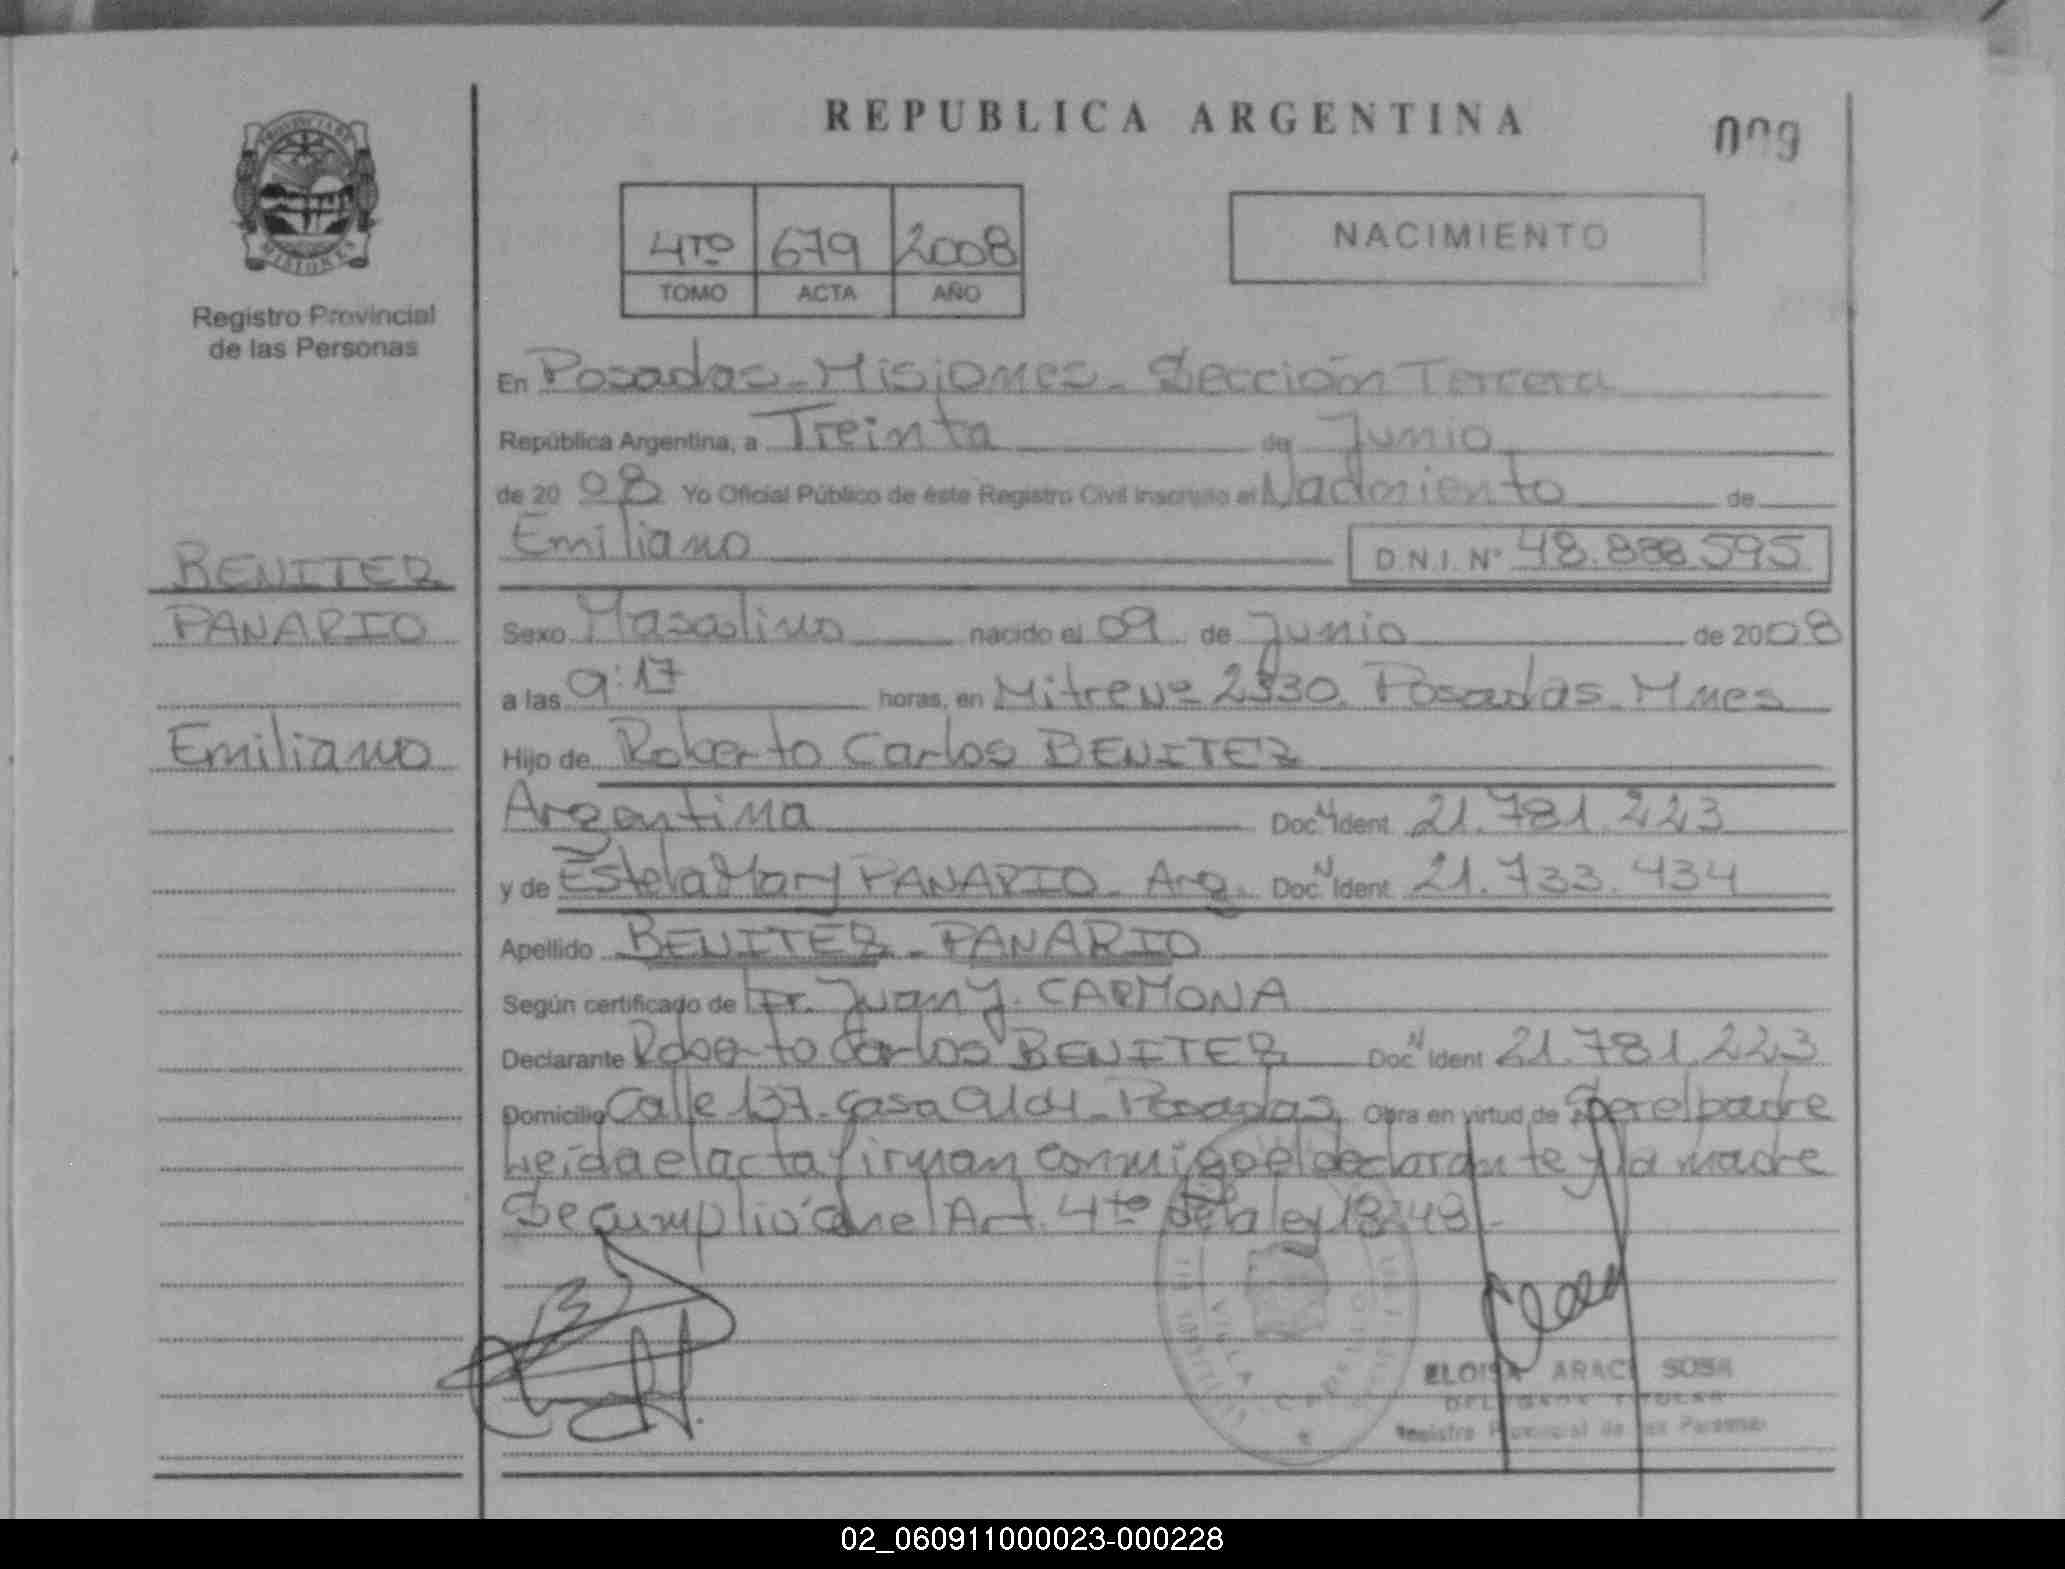 REPUBLICA ARGENTINA
009
PROVINCIA DE
MISIONES
Registro Provincial
de las Personas
4TO 679 2008
TOMO ACTA AÑO
NACIMIENTO
En Posadas - Misiones - Sección Tercera
República Argentina, a Treinta de Junio
de 20 08 Yo Oficial Público de éste Registro Civil inscribo el Nacimiento de
Emiliano D.N.I. N° 48.888.595
BENITEZ
PANARIO
Emiliano
Sexo Masculino nacido el 09 de Junio de 2008
a las 9:17 horas, en Mitre Nº 2330. Posadas - Mnes
Hijo de Roberto Carlos BENITEZ
Argentina Doc. N Ident. 21.781.223
y de Estela Mary PANARIO - Arg. Doc. N Ident. 21.733.434
Apellido BENITEZ - PANARIO
Según certificado de Dr. Juan J. CARMONA
Declarante Roberto Carlos BENITEZ Doc. N Ident 21.781.223
Domicilio Calle 137 - Casa - Posadas Obra en virtud de Ser el padre
Leida el acta firman conmigo el declarante y la madre
Se cumplió con el Art. 4to de la ley 18248 -
VILLA
ELOISA ARACI SOSA
DELEGADA TITULAR
Registro Provincial de las Personas
02_060911000023-000228